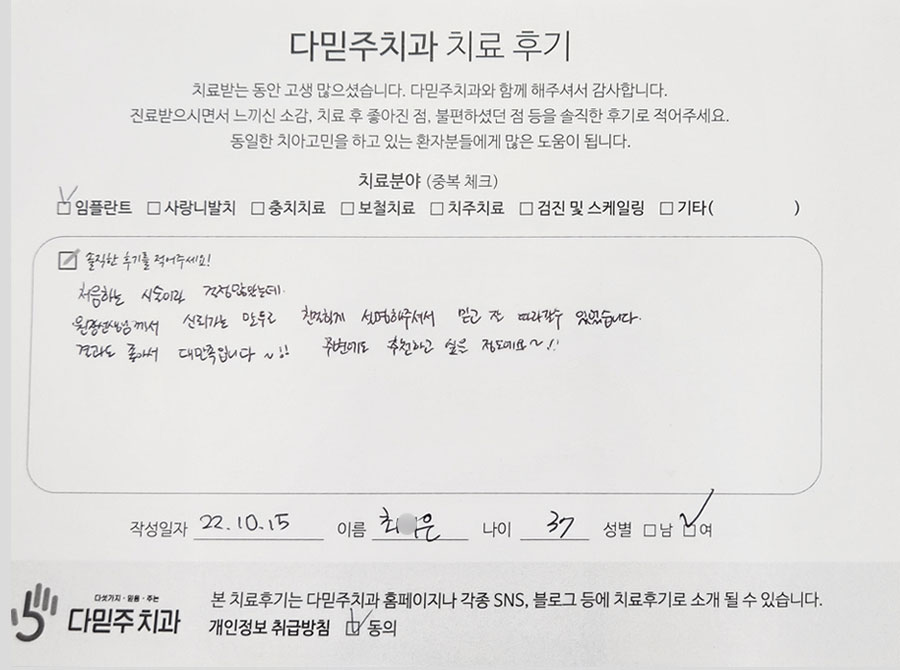 다믿주치과 치료 후기
치료받는 동안 고생 많으셨습니다. 다믿주치과와 함께 해주셔서 감사합니다.
진료받으시면서 느끼신 소감, 치료 후 좋아진 점, 불편하셨던 점 등을 솔직한 후기로 적어주세요.
동일한 치아고민을 하고 있는 환자분들에게 많은 도움이 됩니다.
치료분야 (중복 체크)
☑임플란트 □사랑니발치 □충치치료 □보철치료 □치주치료 □검진 및 스케일링 □기타( )
솔직한 후기를 적어주세요!
처음하는 시술이라 걱정많았는데
원장선생님께서 신뢰가는 말투로 친절하게 설명해주셔서 믿고 잘 따라갈수 있었습니다.
결과도 좋아서 대만족입니다 ~!! 주변에도 추천하고 싶은 정도예요~!!
작성일자 22.10.15 이름 최 은 나이 37 성별 □남 ☑여
다섯가지·믿음·주는
다믿주치과
본 치료후기는 다믿주치과 홈페이지나 각종 SNS, 블로그 등에 치료후기로 소개 될 수 있습니다.
개인정보 취급방침 ☑동의